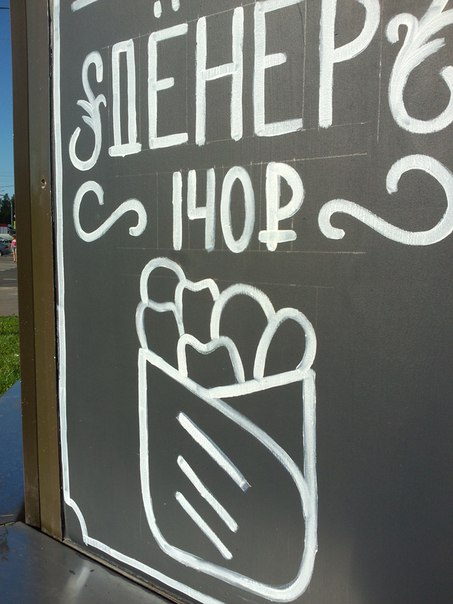 ДЁНЕР
140₽